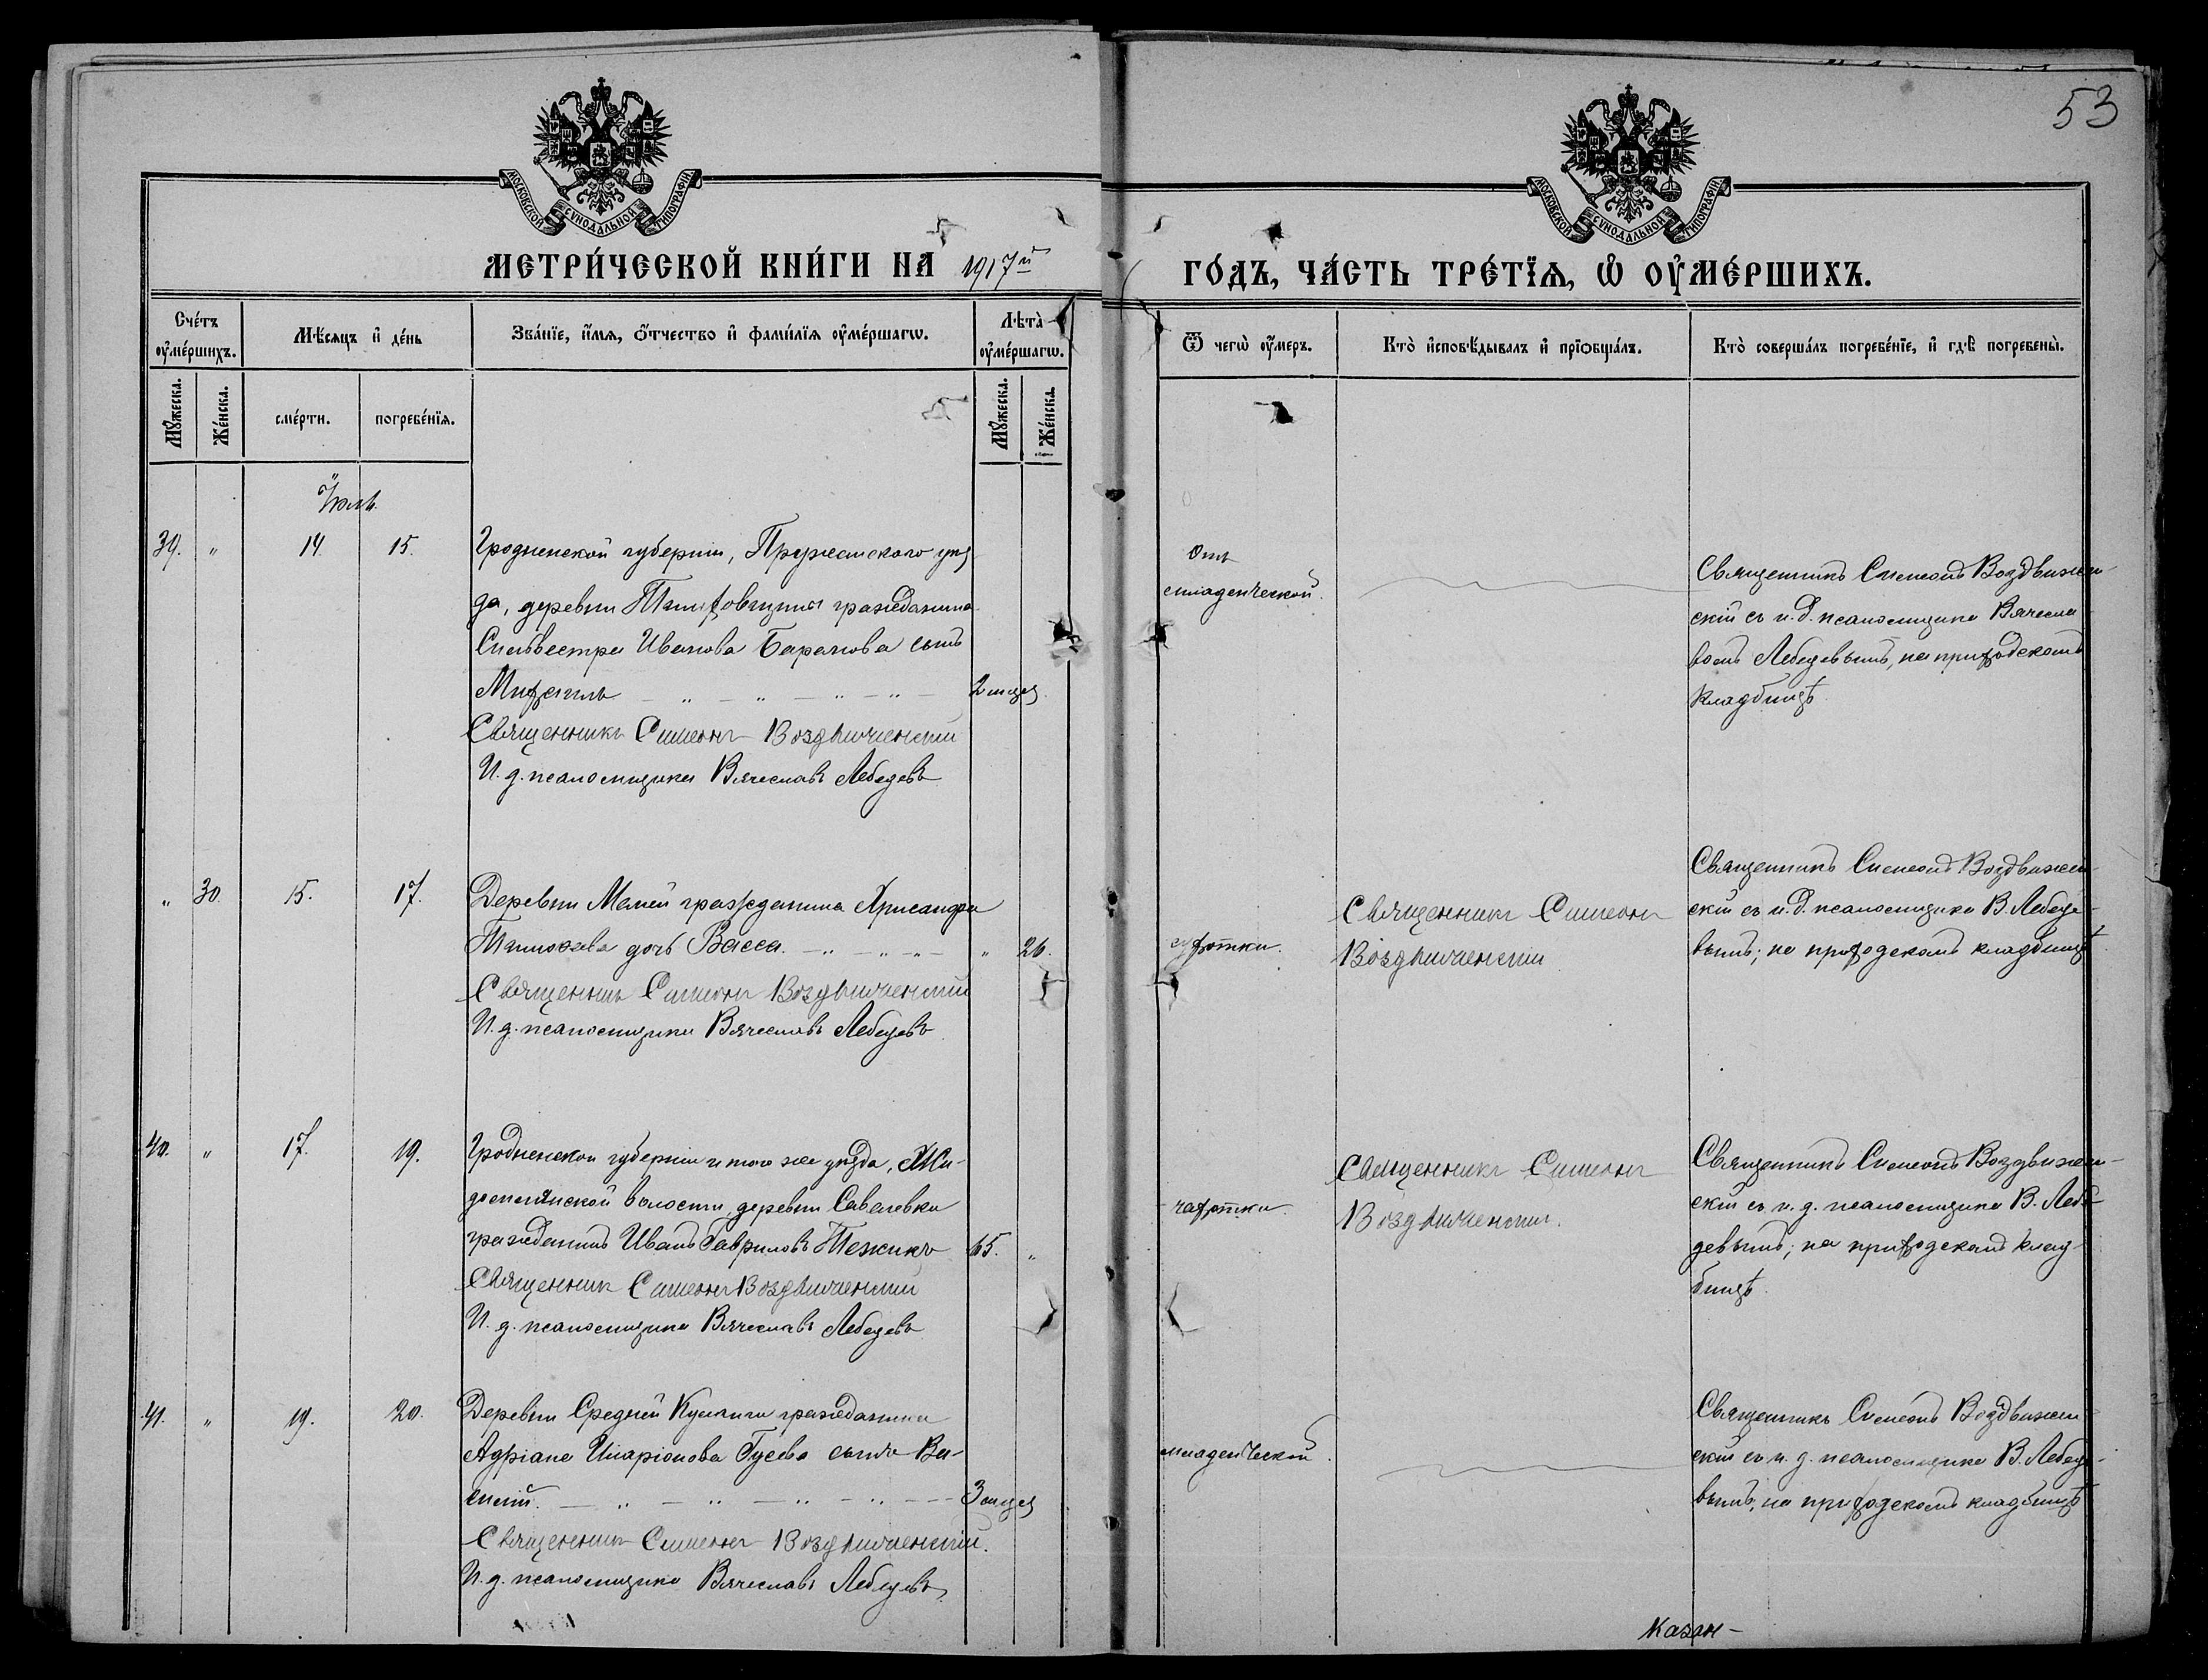 53
МОСКОВСКОЙ СѴНОДАЛЬНОЙ ТИПОГРАФІИ
МОСКОВСКОЙ СѴНОДАЛЬНОЙ ТИПОГРАФІИ
МЕТРИ́ЧЕСКОЙ КНИ́ГИ НА 1917й ГО́ДЪ, ЧА́СТЬ ТРЕ́ТІѦ, Ѡ ОУ҆МЕ́РШИХЪ.
Сче́тъ оу҆ме́ршихъ.
Мѣ́сѧцъ и҆ де́нь
Зва́нїе, и҆́мѧ, ѻ҆́тчество и҆ фами́лїѧ оу҆ме́ршагѡ.
Лѣта̀ оу҆ме́ршагѡ.
Ѿ чегѡ̀ оу҆́меръ.
Кто̀ и҆сповѣ́дывалъ и҆ прїѡбща́лъ.
Кто̀ соверша́лъ погребе́нїе, и҆ гдѣ̀ погребены̀.
Мꙋ́жеска.
Же́нска.
сме́рти.
погребе́нїѧ.
Мꙋ́жеска.
Же́нска.
Іюль.
39. " 14. 15.
Гродненской губерніи, Пружанскаго уѣз-
да, деревни гражданина
Сильвестра Иванова Баранова сынъ
Михаилъ — " — " — " — " — 2 мѣсяц
Священникъ Симеонъ Воздвиженскій
И. д. псаломщика Вячеславъ Лебедевъ
Отъ
младенческой.
Священникъ Симеонъ Воздвижен-
скій съ и. д. псаломщика Вячесла
вомъ Лебедевымъ, на приходскомъ
кладбищѣ.
" 30. 15. 17.
Деревни Мамей гражданина Хрисанфа
Тимофеева дочь Васса. — " — " — " 26.
Священникъ Симеонъ Воздвиженскій
И. д. псаломщика Вячеславъ Лебедевъ
чахотки.
Священникъ Симеонъ
Воздвиженскій
Священникъ Симеонъ Воздвижен-
скій съ и. д. псаломщика В. Лебеде-
вымъ; на приходскомъ кладбищѣ
40. " 17. 19.
Гродненской губерніи и того же уѣзда,
волости, деревни Савелевки
гражданинъ Иванъ Гавриловъ 65. "
Священникъ Симеонъ Воздвиженскій
И. д. псаломщика Вячеславъ Лебедевъ
чахотки.
Священникъ Симеонъ
Воздвиженскій.
Священникъ Симеонъ Воздвижен-
скій съ и. д. псаломщика В. Лебе-
девымъ; на приходскомъ клад-
бищѣ.
41. " 19. 20.
Деревни Средней гражданина
Адріана Иларіонова Гусева сынъ Ва-
силій. — " — " — " — " — 3 мѣсяц
Священникъ Симеонъ Воздвиженскій.
И. д. псаломщика Вячеславъ Лебедевъ
младенческой.
Священникъ Симеонъ Воздвижен-
скій съ и. д. псаломщика В. Лебеде-
вымъ, на приходскомъ кладбищѣ
Казан-